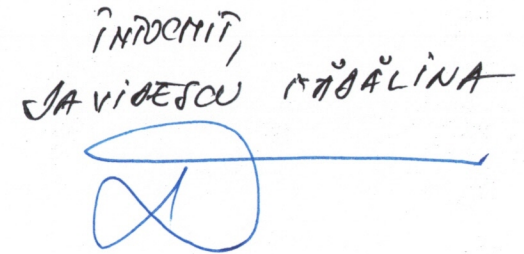 ÎNTOCMIT,
DAVIDESCU MĂDĂLINA